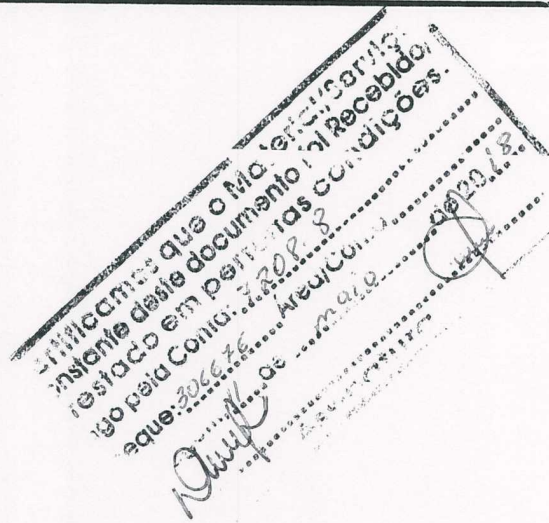 ertificamos que o Material/Serviço
onstante deste documento foi Recebido/
restado em perfeitas condições.
ago pela Conta: 7.208.8
eque: 306676 Área/Conta
de maio de 2018.